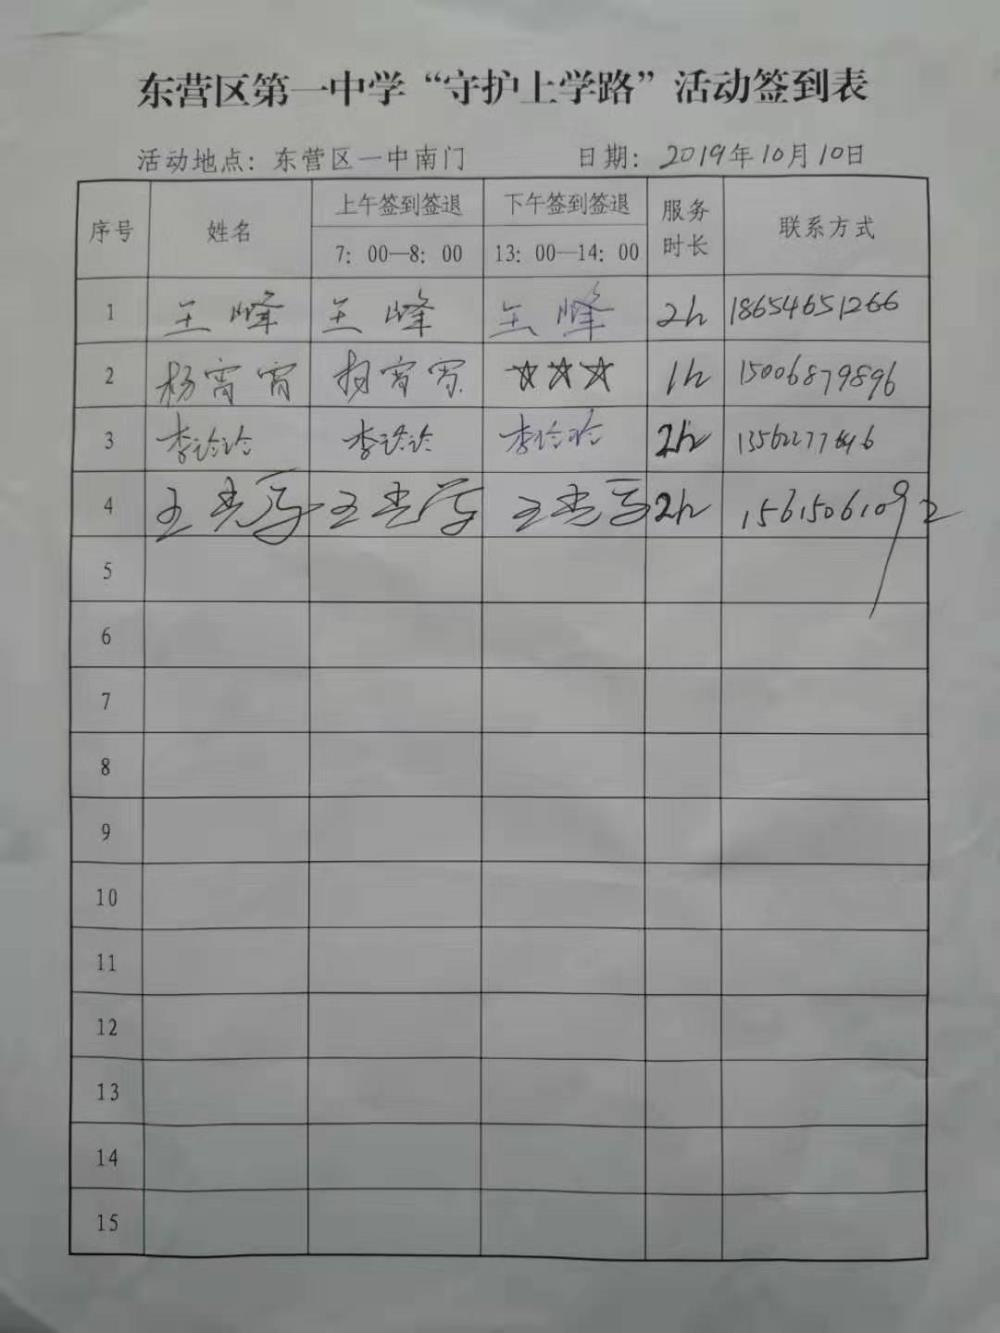 东营区第一中学“守护上学路”活动签到表
活动地点：东营区一中南门 日期：2019年10月10日
序号 姓名 上午签到签退 下午签到签退 服务时长 联系方式
7：00—8：00 13：00—14：00
1 王峰 王峰 王峰 2h 18654651266
2 杨宵宵 杨宵宵 ☆☆☆ 1h 15006879896
3 李 李 李 2h
4 王 王 王 2h 15615061092
5
6
7
8
9
10
11
12
13
14
15